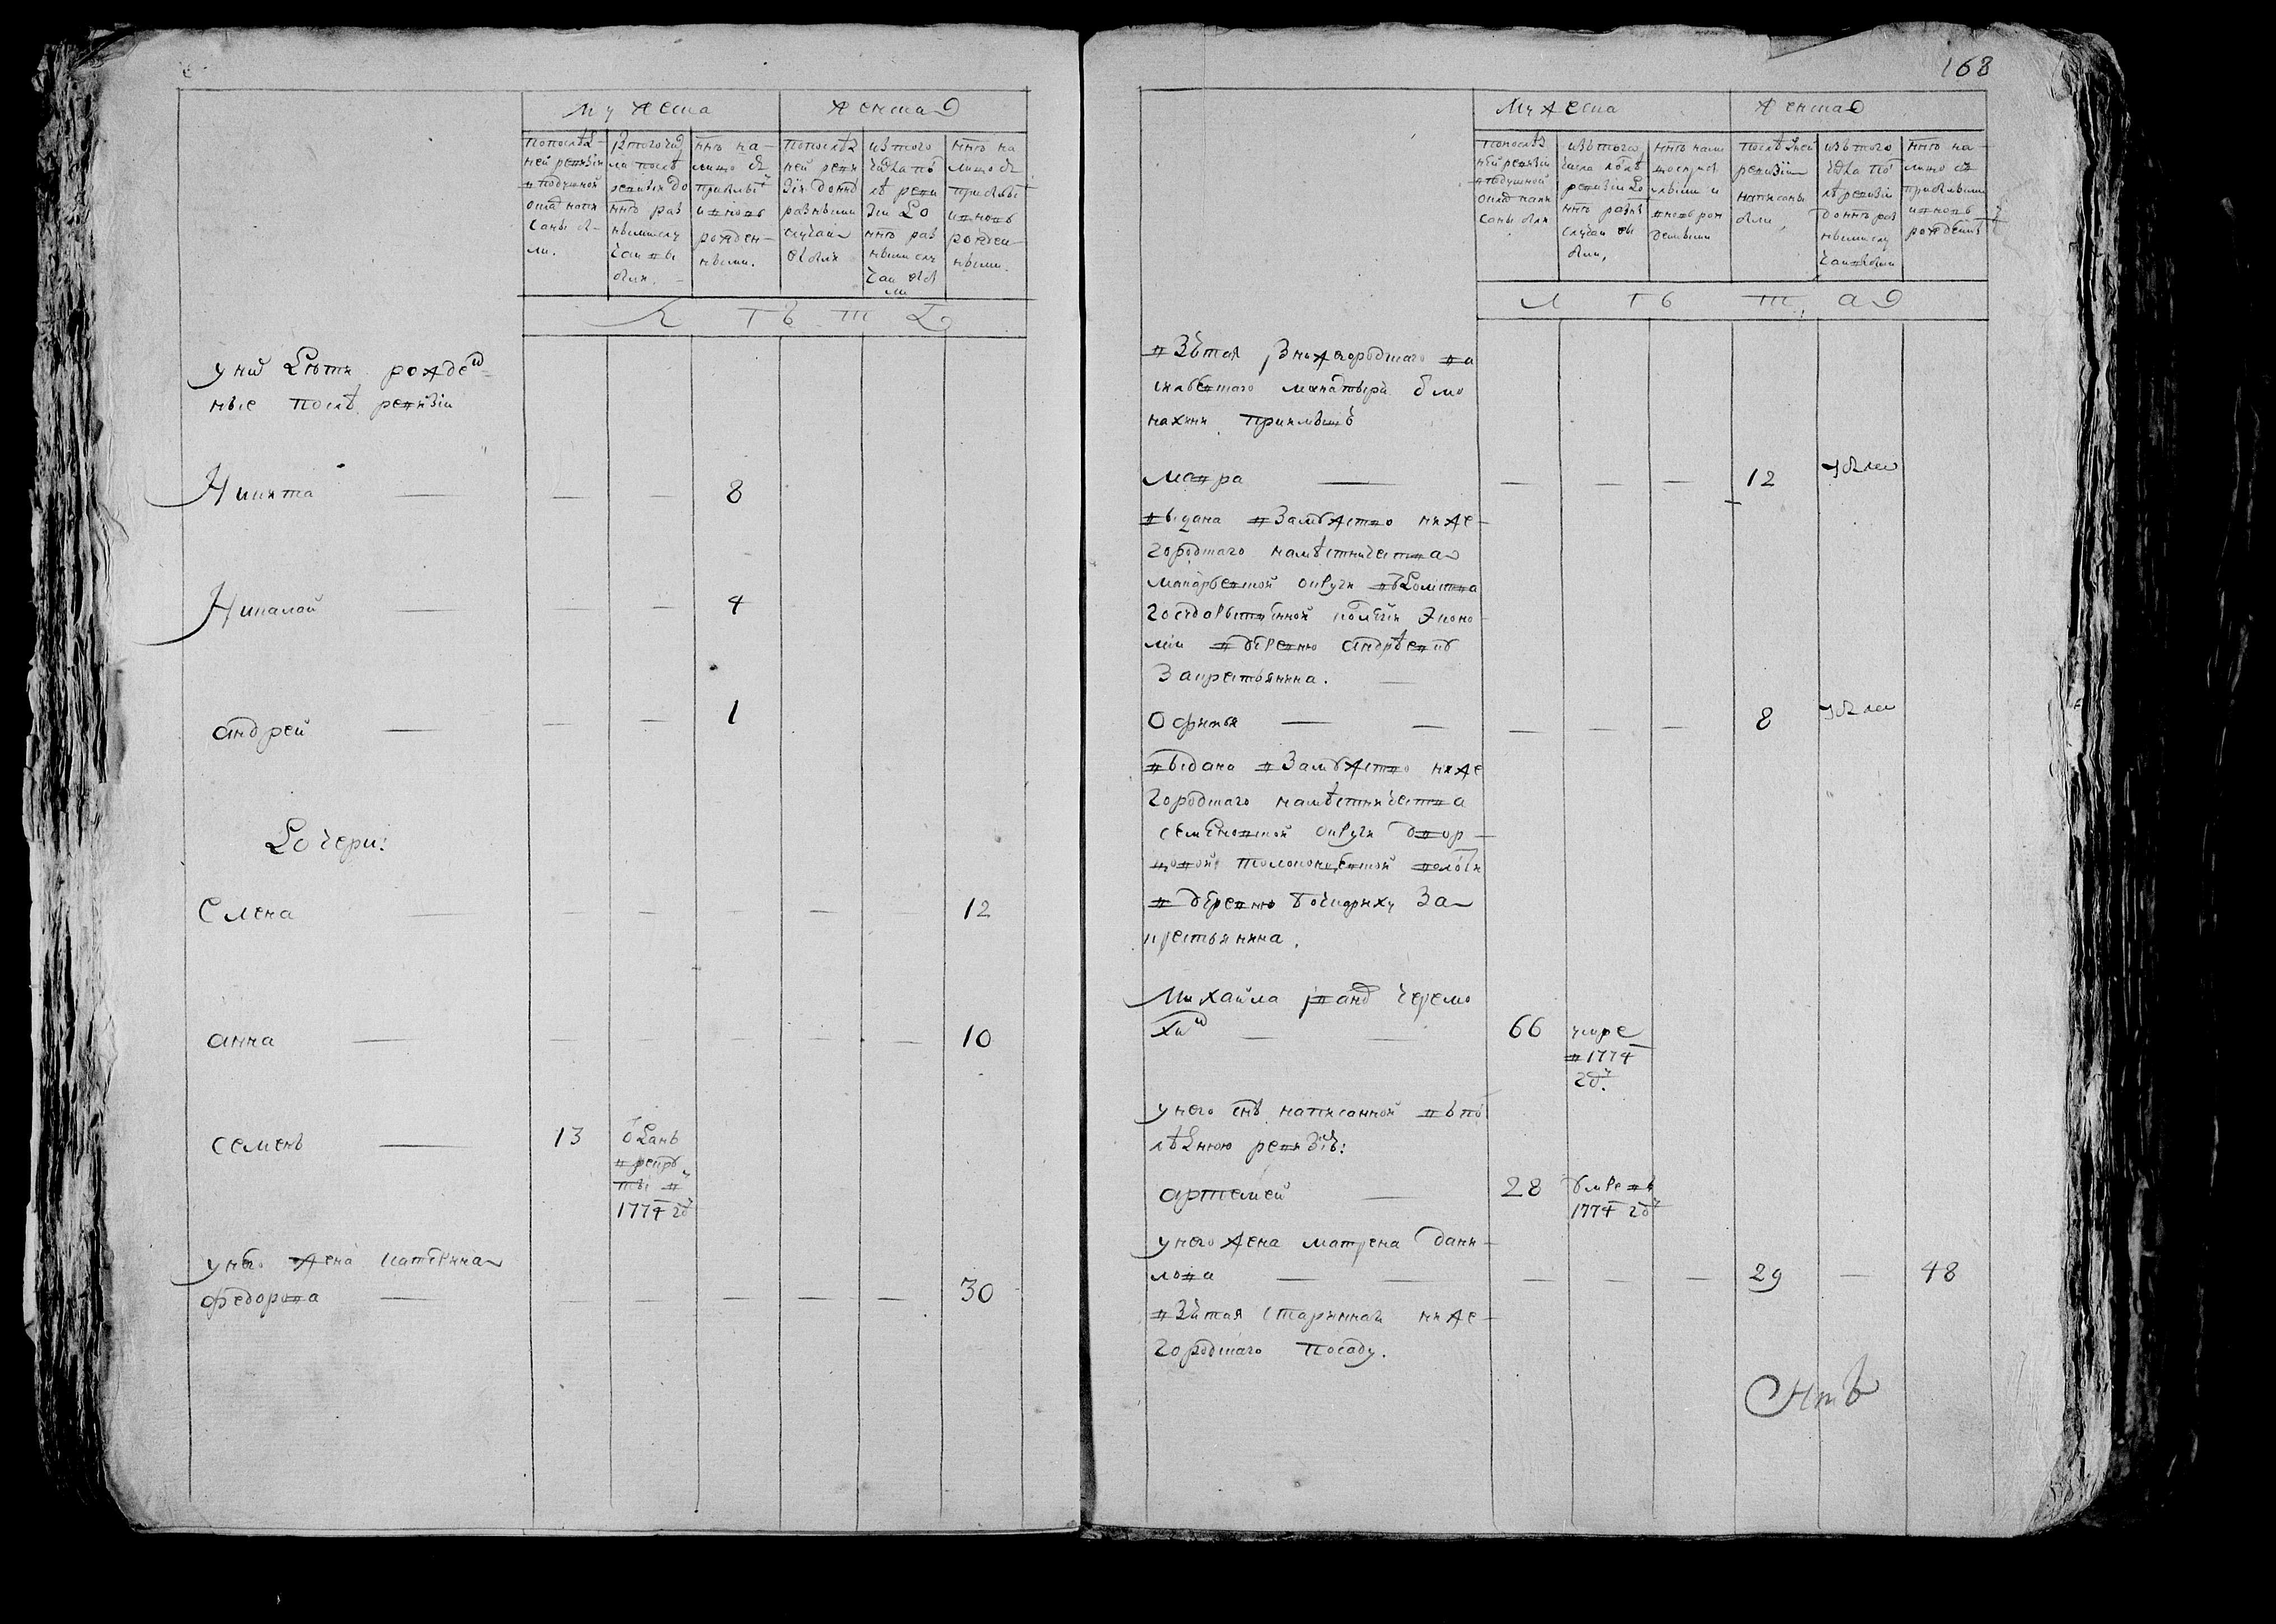 Мужеска
Женска
по послѣд-
ней ревизіи
в подушной
оклад напи
саны бы-
ли.
ис того чис
ла послѣ
ревизіи до
ннѣ раз
ными слу
чаи вы
были.
ннѣ на-
лицо съ
прибылы
и внов
рожден-
ными.
по послѣд
ней реви
зіи до ннѣ
разными
случаи
выбыли
из того
числа по
слѣ реви
зіи до
ннѣ раз
ными слу
чаи выбы
ли
ннѣ на
лицо съ
прибылы
и вновь
рожден-
ными.
Л ѣ т а
у них дѣти рожден-
ные послѣ ревизіи
Никита — — — 8
Николай — — — 4
андрей — — — 1
Дочери:
Елена — — — — 12
анна — — — — — — 10
семенъ — 13 отданъ
в рекру
ты в
1774 гд
у него жена катерина
федорова — — — — — — 30
168
Мужеска
Женска
по послѣд
ней ревизіи
в подушной
оклад напи
саны были
изъ того
числа послѣ
ревизіи до
ннѣ разн
случаи вы
были,
ннѣ нали
цо с приб
ылыми и
вновь рож
денными
послѣдней
ревизіи
написаны
были,
изъ того
числа по
слѣ ревизіи
до ннѣ раз
ными слу
чаи выбыли
ннѣ на-
лицо съ
прибылыми
и вновь
рожденны
Л ѣ т а
взятая из нижегородскаго
манастыря
приимышъ
мавра — — — — 12 убыла
выдана в замужство ниже-
городскаго намѣстничества
макарьевской округи вѣдомства
государственной колегіи эконо-
міи в деревню андрѣевку
за крестьянина. —
Офимья — — — — — 8 убыла
выдана в замужство ниже
городскаго намѣстничества
семеновской округи двор-
цовой толоконцевской волости
в деревню за
крестьянина.
Михайла иванов черемо
хин — — 66 умре
в 1774
гд.
у него снъ написанной в по
слѣднюю ревизію:
артемей — 28 умре въ
1774 гд
у него жена матрена дани-
лова — — — — — 29 — 48
взятая старинная ниже-
городскаго посаду.